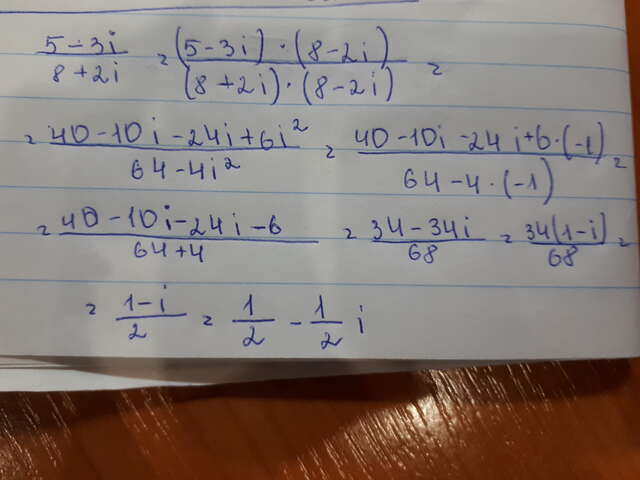 (5-3i)/(8+2i) = ((5-3i)·(8-2i))/((8+2i)·(8-2i)) =
= (40-10i-24i+6i²)/(64-4i²) = (40-10i-24i+6·(-1))/(64-4·(-1)) =
= (40-10i-24i-6)/(64+4) = (34-34i)/68 = (34(1-i))/68 =
= (1-i)/2 = 1/2 - 1/2 i